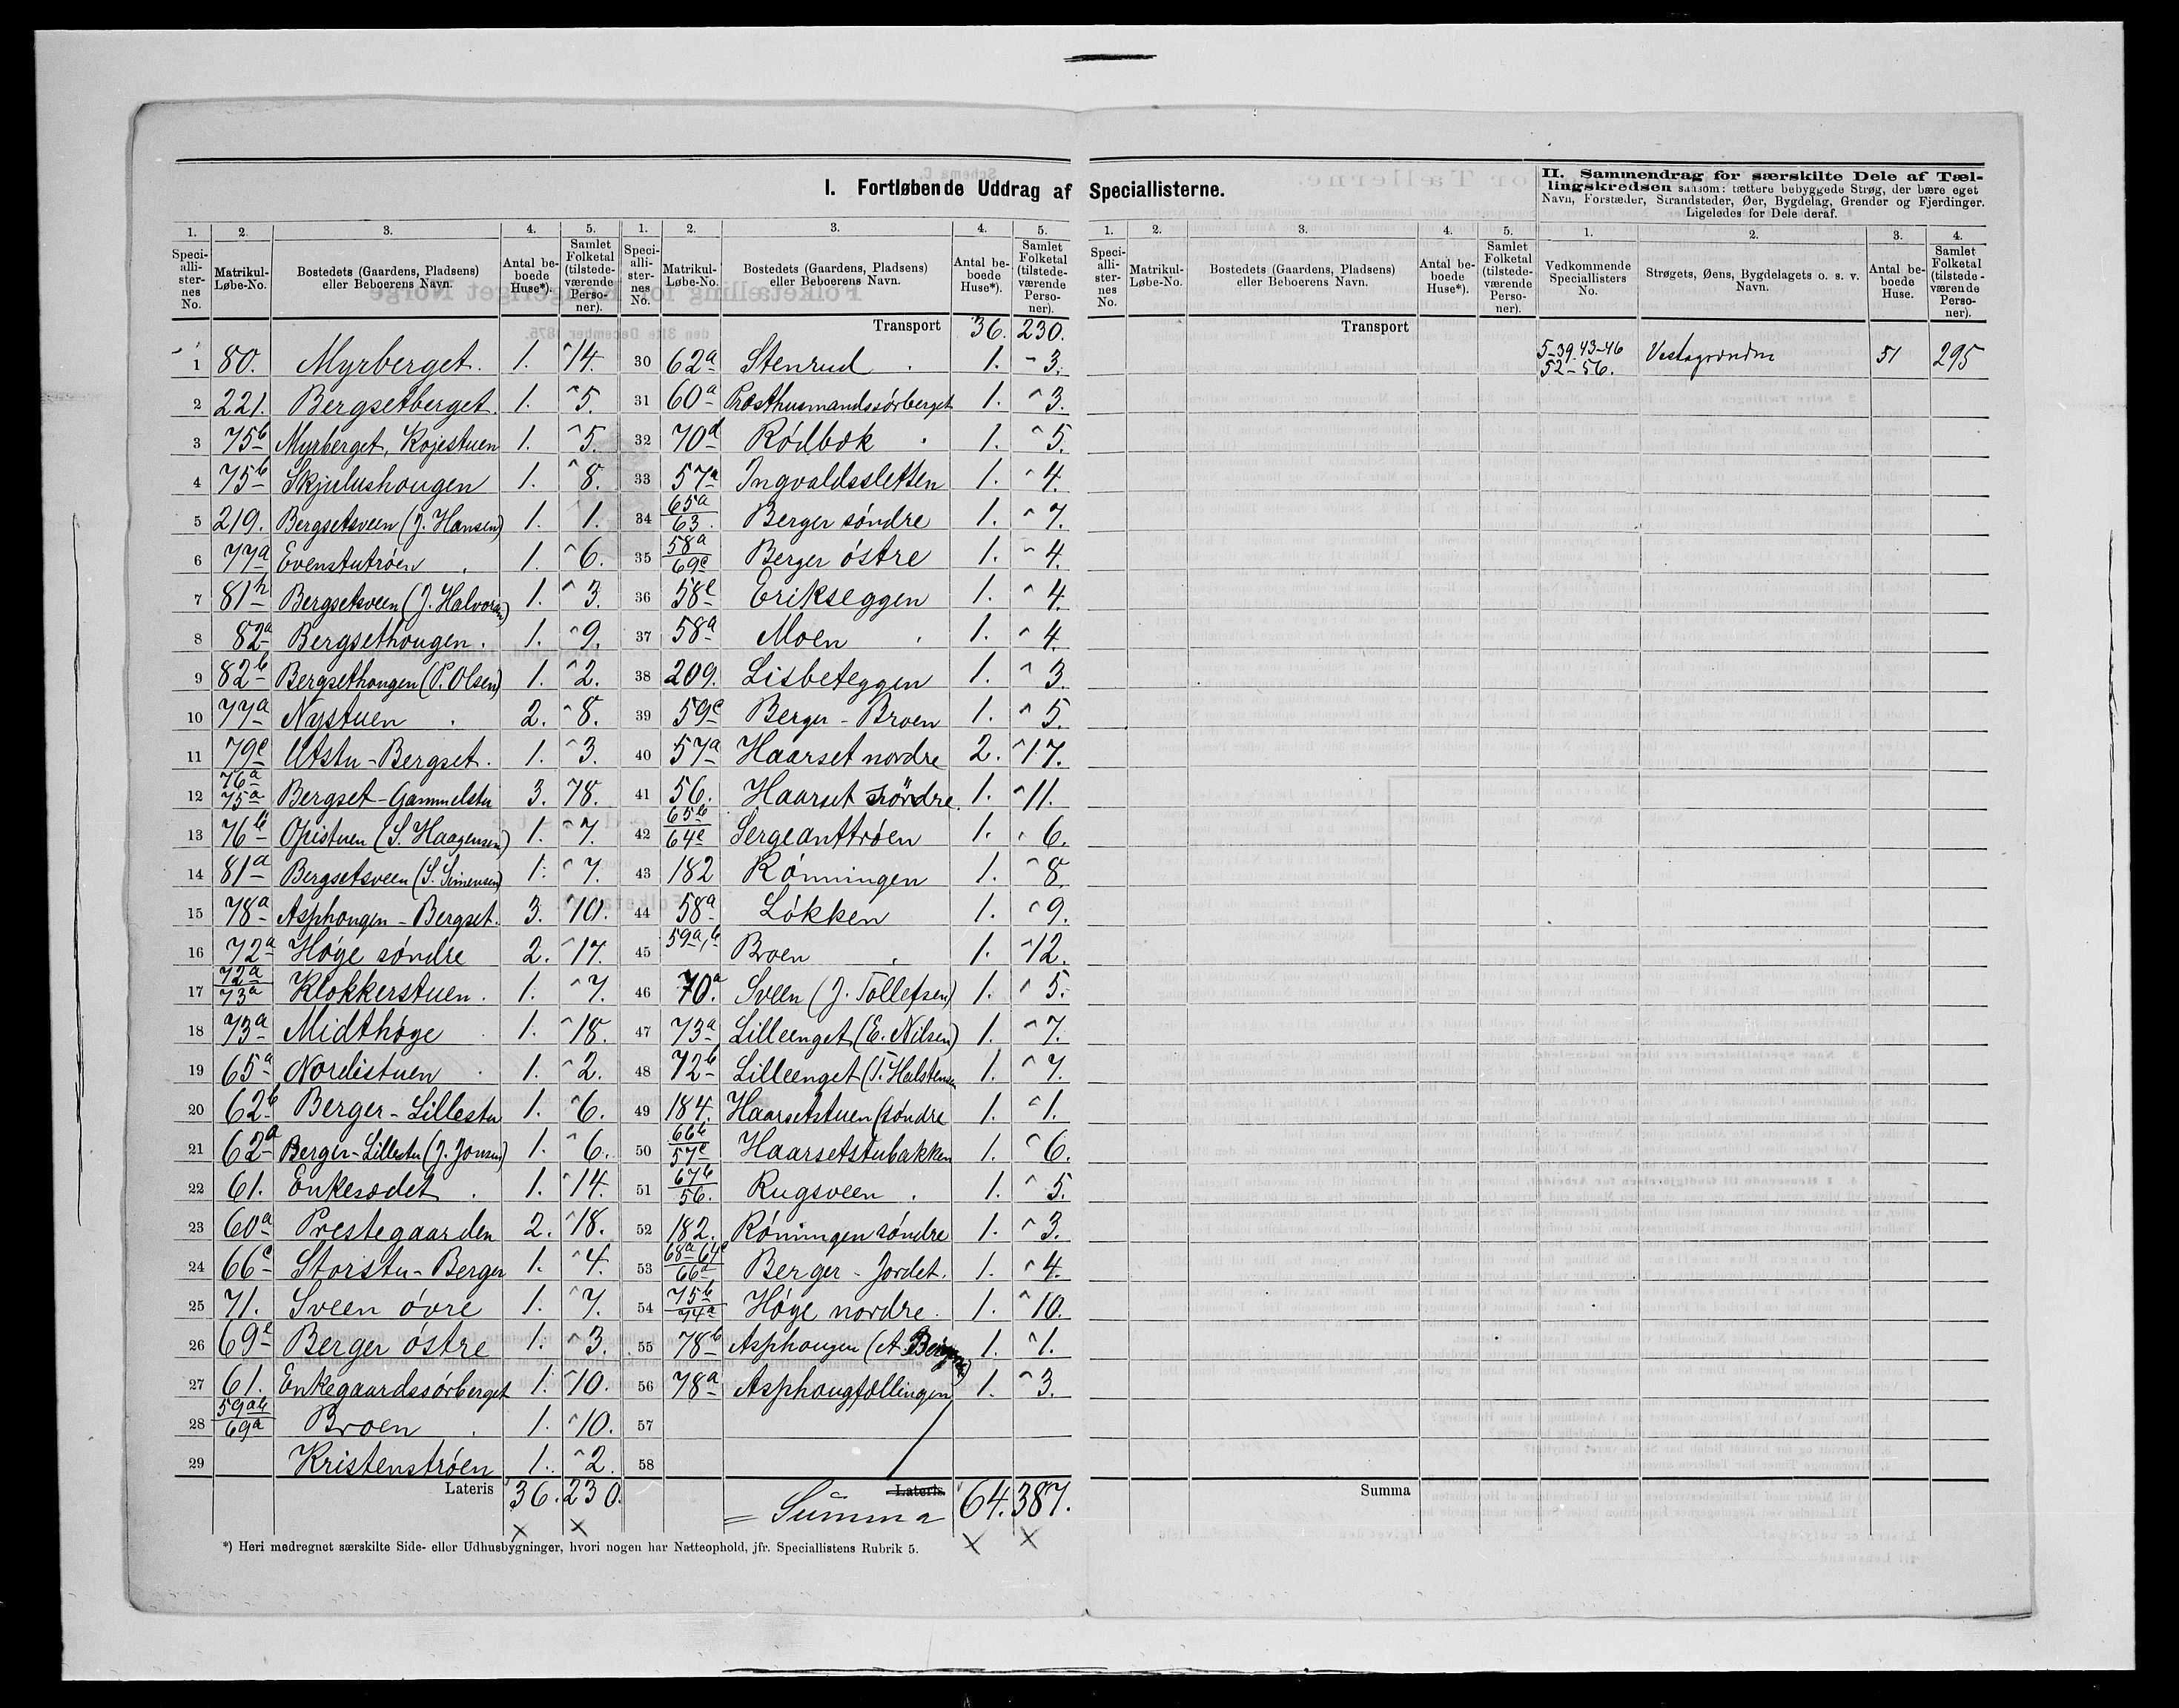 I. Fortløbende Uddrag af Speciallisterne.
II. Sammendrag for særskilte Dele af Tæl-
lingskredsen saasom: tættere bebyggede Strøg, der bære eget
Navn, Forstæder, Strandsteder, Øer, Bygdelag, Grender og Fjerdinger.
Ligeledes for Dele deraf.
1. 2. 3. 4. 5. 1. 2. 3. 4. 5. 1. 2. 3. 4. 5. 1. 2. 3. 4.
Speci-alli-ster-nes No. Matrikul-Løbe-No. Bostedets (Gaardens, Pladsens) eller Beboerens Navn. Antal be-boede Huse*). Samlet Folketal (tilstede-værende Perso-ner).
Speci-alli-ster-nes No. Matrikul-Løbe-No. Bostedets (Gaardens, Pladsens) eller Beboerens Navn. Antal be-boede Huse*). Samlet Folketal (tilstede-værende Perso-ner).
Speci-alli-ster-nes No. Matrikul-Løbe-No. Bostedets (Gaardens, Pladsens) eller Beboerens Navn. Antal be-boede Huse*). Samlet Folketal (tilstede-værende Perso-ner).
Vedkommende Speciallisters No. Strøgets, Øens, Bygdelagets o. s. v. Navn. Antal be-boede Huse. Samlet Folketal (tilstede-værende Perso-ner).
1 80. Myrberget. 1. 14.
2 221. Bergsetberget. 1. 5.
3 75b Myrberget, Kojestuen 1. 5.
4 75b Skjulushougen 1. 8.
5 219. Bergsetsveen (J. Hansen) 1. 1.
6 77a Evenstutrøen 1. 6.
7 81b Bergsetsveen (J. Halvorsn) 1. 3.
8 82a Bergsethougen. 1. 9.
9 82b Bergsethougen (P. Olsen) 1. 2.
10 77a Nystuen 2. 8.
11 79c Utstu-Bergset. 1. 3.
12 76a 75a Bergset-Gammelstu 3. 18.
13 76b Opistuen (S. Haagensen) 1. 7.
14 81a Bergsetsveen (S. Simensen) 1. 7.
15 78a Asphougen-Bergset. 3. 10.
16 72a Høge søndre 2. 17.
17 72a 73a Klokkerstuen. 1. 7.
18 73a Midthøge 1. 18.
19 65a Nordistuen 1. 2.
20 62b Berger-Lillestu 1. 6.
21 62a Berger-Lillestu (J. Jonsen) 1. 6.
22 61. Enkesædet 1. 14.
23 60a Prestegaarden 2. 18.
24 66c Storstu-Berger 1. 4.
25 71. Sveen øvre 1. 7.
26 69c Berger østre 1. 3.
27 61. Enkegaardssørberget 1. 10.
28 59ab 69a Broen 1. 10.
29 Kristenstrøen 1. 2.
Lateris 36. 230.
Transport 36. 230.
30 62a Stenrud 1. 3.
31 60a Præsthusmandssørberget 1. 3.
32 70d Rødbæk 1. 5.
33 57a Ingvaldssletten 1. 4.
34 65a 63. Berger søndre 1. 7.
35 58a 69c Berger østre 1. 4.
36 58c Erikseggen 1. 4.
37 58a Moen 1. 4.
38 209. Lisbeteggen 1. 3.
39 59c Berger-Broen 1. 5.
40 57a Haarset nordre 2. 17.
41 56. Haarset søndre. 1. 11.
42 65b 64c Sergeanttrøen 1. 6.
43 182 Rønningen 1. 8.
44 58a Løkken 1. 9.
45 59a,b Broen 1. 12.
46 70a. Sveen (J. Tollefsen) 1. 5.
47 73a Lilleenget (E. Nilsen) 1. 7.
48 72b Lilleenget (T. Halstensen 1. 7.
49 184. Haarsetstuen (søndre 1. 1.
50 66b 57c Haarsetstubakken 1. 6.
51 67b 56. Rugsveen 1. 5.
52 182. Rønningen søndre 1. 3.
53 68a 64c 66a Berger-Jordet. 1. 4.
54 75b 74a Høge nordre. 1. 10.
55 78b Asphougen (A 1. 1.
56 78a Asphougfællingen 1. 3.
57
58
Lateris = Summa 64. 387.
Transport
Summa
5-39. 43-46 52-56. Vestagrenden 51 295
*) Heri medregnet særskilte Side- eller Udhusbygninger, hvori nogen har Natteophold, jfr. Speciallistens Rubrik 5.